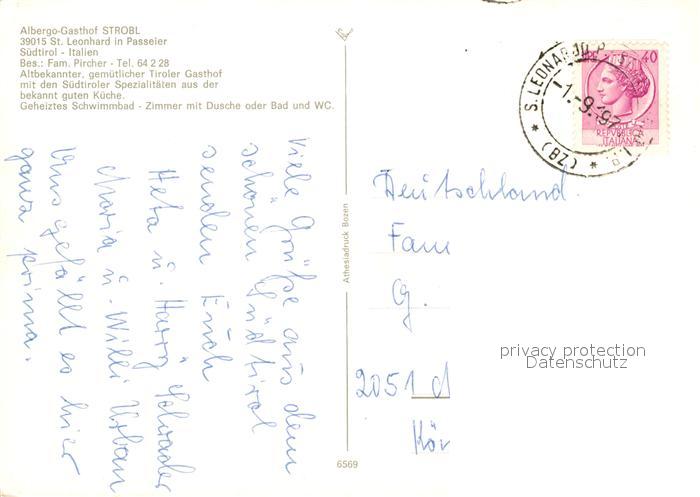 Albergo-Gasthof STROBL
39015 St. Leonhard in Passeier
Südtirol - Italien
Bes.: Fam. Pircher - Tel. 64 2 28
Altbekannter, gemütlicher Tiroler Gasthof
mit den Südtiroler Spezialitäten aus der
bekannt guten Küche.
Geheiztes Schwimmbad - Zimmer mit Dusche oder Bad und WC.
Viele Grüße aus dem
schönen Südtirol
senden Euch
Heta u. Harry Schrader
Maria u. Willi Urban
Uns gefällt es hier
ganz prima.
Athesiadruck Bozen
6569
S. LEONARDO P.
1.-9.197
(BZ)
40
REPUBBLICA
ITALIANA
Deutschland.
Fam
G.
2051 d
Kör
privacy protection
Datenschutz